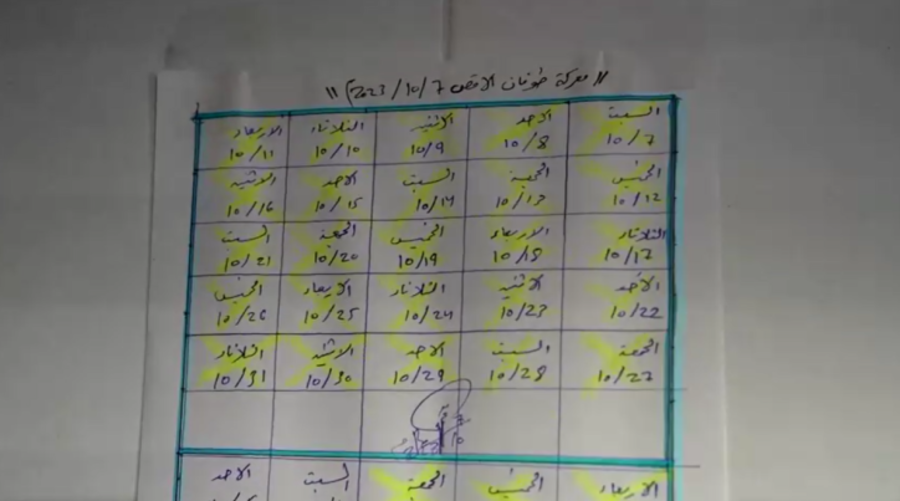 "معركة طوفان الاقصى 2023/10/7م"
السبت الاحد الاثنين الثلاثاء الاربعاء
10/7 10/8 10/9 10/10 10/11
الخميس الجمعة السبت الاحد الاثنين
10/12 10/13 10/14 10/15 10/16
الثلاثاء الاربعاء الخميس الجمعة السبت
10/17 10/18 10/19 10/20 10/21
الأحد الاثنين الثلاثاء الاربعاء الخميس
10/22 10/23 10/24 10/25 10/26
الجمعة السبت الاحد الاثنين الثلاثاء
10/27 10/28 10/29 10/30 10/31
الاربعاء الخميس الجمعة السبت الاحد